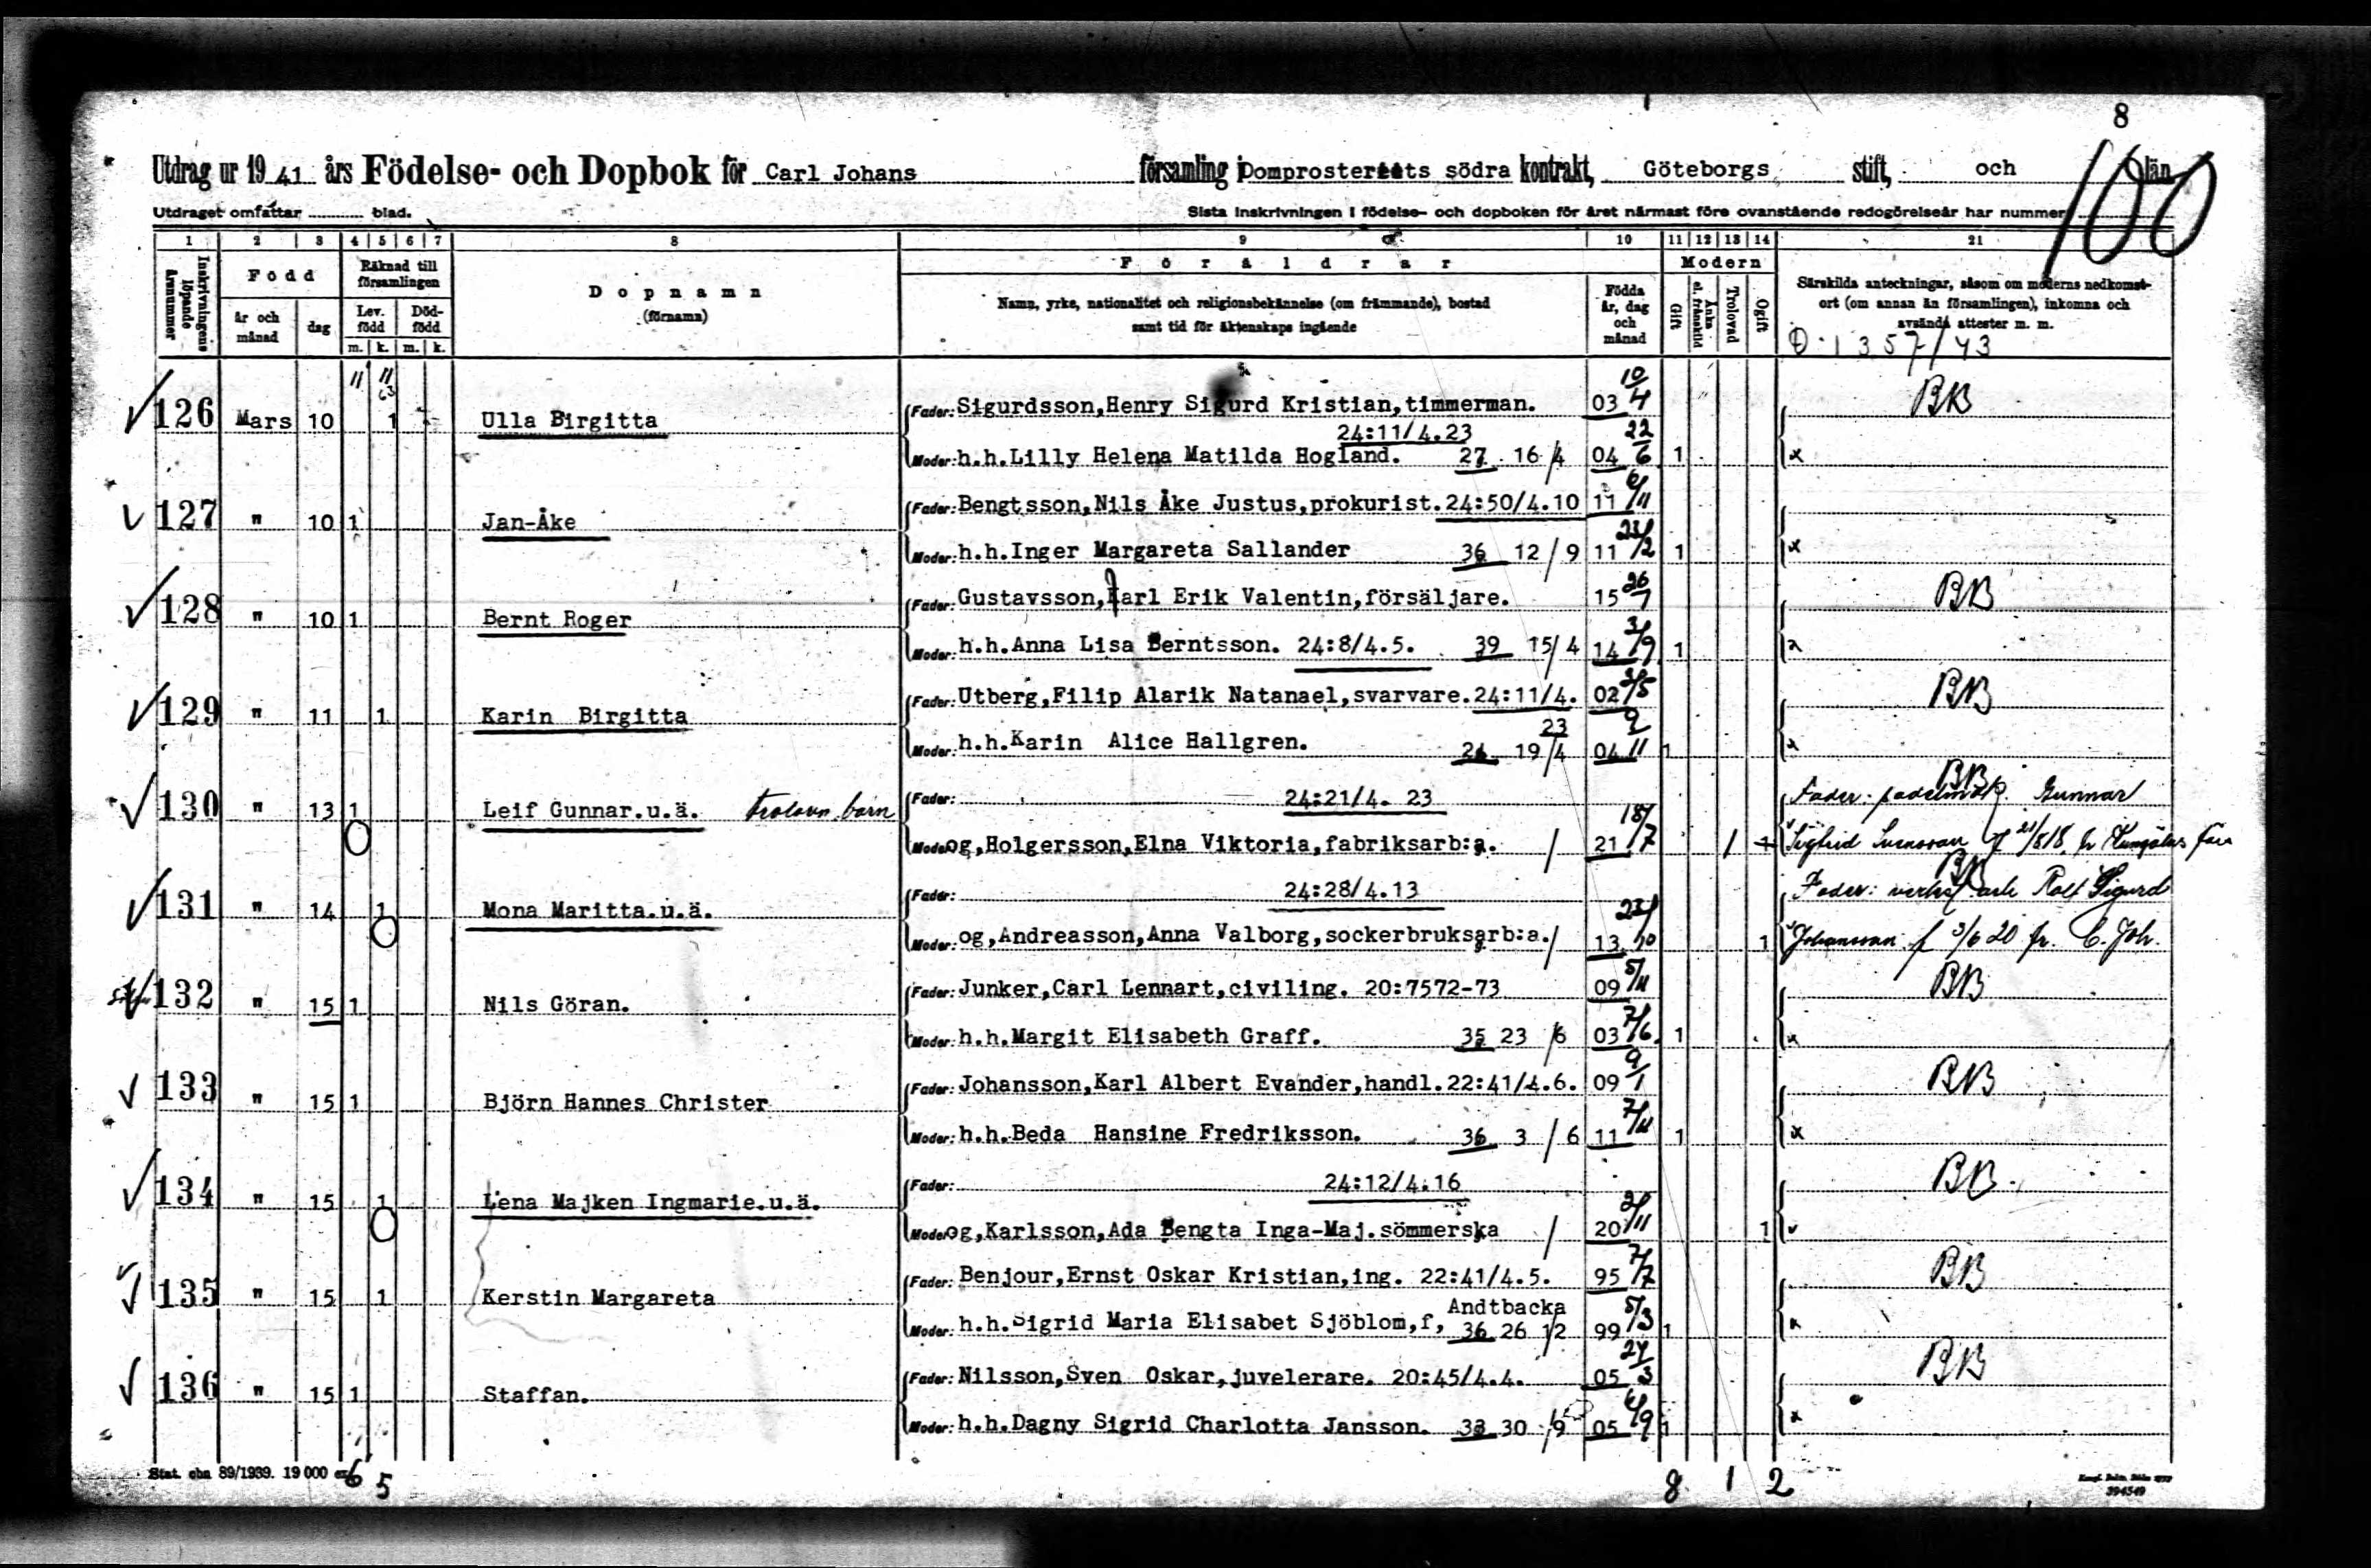 8
100
Utdrag ur 1941 års Födelse- och Dopbok för Carl Johans församling i Domprosteriets södra kontrakt, Göteborgs stift, och län
Utdraget omfattar blad. Sista inskrivningen i födelse- och dopboken för året närmast före ovanstående redogörelseår har nummer
1 2 3 4 5 6 7 8 9 10 11 12 13 14 21
Inskrivningens löpande årsnummer
Född
år och månad
dag
Räknad till församlingen
Lev. född
Död-född
m. k. m. k.
Dopnamn
(förnamn)
Föräldrar
Namn, yrke, nationalitet och religionsbekännelse (om främmande), bostad
samt tid för äktenskaps ingående
Födda år, dag och månad
Modern
Gift
Änka el. frånskild
Trolovad
Ogift
Särskilda anteckningar, såsom om moderns nedkomst-
ort (om annan än församlingen), inkomna och
avsända attester m. m.
D. 1357/43
126 Mars 10 1 Ulla Birgitta
Fader: Sigurdsson,Henry Sigurd Kristian,timmerman. 03 10/4 BB
24:11/4.23
Moder: h.h.Lilly Helena Matilda Hogland. 27 16/4 04 22/6 1 x
127 " 10 1 Jan-Åke
Fader: Bengtsson,Nils Åke Justus,prokurist.24:50/4.10 11 6/11
Moder: h.h.Inger Margareta Sallander 36 12/9 11 23/12 1 x
128 " 10 1 Bernt Roger
Fader: Gustavsson,Karl Erik Valentin,försäljare. 15 26/7 BB
Moder: h.h.Anna Lisa Berntsson. 24:8/4.5. 39 15/4 14 3/9 1
129 " 11 1 Karin Birgitta
Fader: Utberg,Filip Alarik Natanael,svarvare.24:11/4. 02 BB
23
Moder: h.h.Karin Alice Hallgren. 19/4 04 9/11 1
130 " 13 1 Leif Gunnar.u.ä. trolovn. barn
Fader: 24:21/4. 23 BB Fader: Gunnar
Moder: og,Holgersson,Elna Viktoria,fabriksarb:a. / 21 18/7 1 Sigfrid Svensson f
131 " 14 1 Mona Maritta.u.ä.
Fader: 24:28/4.13 BB Fader: Rolf Sigurd
Moder: og,Andreasson,Anna Valborg,sockerbruksarb:a. / 13 23/10 1 Johansson f 3/6 20 fr. C. Joh.
132 " 15 1 Nils Göran.
Fader: Junker,Carl Lennart,civiling. 20:7572-73 09 5/11 BB
Moder: h.h.Margit Elisabeth Graff. 35 23/6 03 7/6 1 x
133 " 15 1 Björn Hannes Christer
Fader: Johansson,Karl Albert Evander,handl.22:41/4.6. 09 9/1 BB
Moder: h.h.Beda Hansine Fredriksson. 36 3/6 11 7/11 1 x
134 " 15 1 Lena Majken Ingmarie.u.ä.
Fader: 24:12/4.16 BB
Moder: og,Karlsson,Ada Bengta Inga-Maj.sömmerska / 20 2/11 1
135 " 15 1 Kerstin Margareta
Fader: Benjour,Ernst Oskar Kristian,ing. 22:41/4.5. 95 7/7 BB
Andtbacka
Moder: h.h.Sigrid Maria Elisabet Sjöblom,f, 36 26 12 99 5/3 1 x
136 " 15 1 Staffan.
Fader: Nilsson,Sven Oskar,juvelerare. 20:45/4.4. 05 24/3 BB
Moder: h.h.Dagny Sigrid Charlotta Jansson. 33 30/9 05 6/9 1 x
Stat. cbn 89/1939. 19 000 ex. 6 5 8 1 2
394549